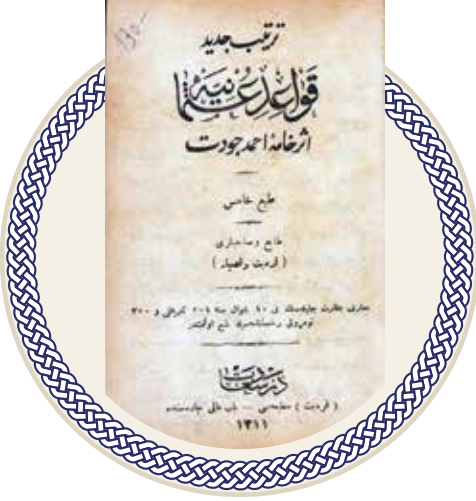 ترتيب جديد
قواعد عثمانيه
اثر خامۀ احمد جودت
طبع خامس
طابع و ناشرى
( قره بت و قصبار )
معارف نظارت جليله‌سنك فى ١٠ شوال سنه ٣٠٤ تاريخلى و ٣٠٠
نومرولى رخصتنامه‌سيله طبع اولنمشدر
در سعادت
( قره بت ) مطبعه‌سى — باب عالى جاده‌سنده
١٣١١